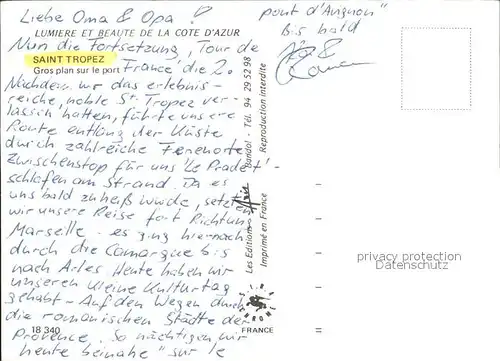 Liebe Oma & Opa !
LUMIERE ET BEAUTE DE LA COTE D'AZUR
Nun die Fortsetzung, Tour de
SAINT TROPEZ
Gros plan sur le port
France die 2.
Nachdem wir das erlebnis-
reiche, noble St. Tropez ver-
lassen hatten, führte unsere
Route entlang der Küste
durch zahlreiche Ferienorte
Zwischenstop für uns 'Le Pradet' -
schlafen am Strand. Da es
uns bald zu heiß wurde, setzten
wir unsere Reise fort Richtung
Marseille - es ging hiernach
durch die Camargue bis
nach Arles. Heute haben wir
unseren kleine Kulturtag
gehabt - Auf den Wegen durch
die romanischen Städte der
Provence. So nächtigen wir
heute beinahe "sur le
pont d'Avignon"
Bis bald
&
18 340
FRANCE
Les Editions
Aris
Bandol - Tél. 94 29 52 98
Imprimé en France
Reproduction interdite
privacy protection
Datenschutz